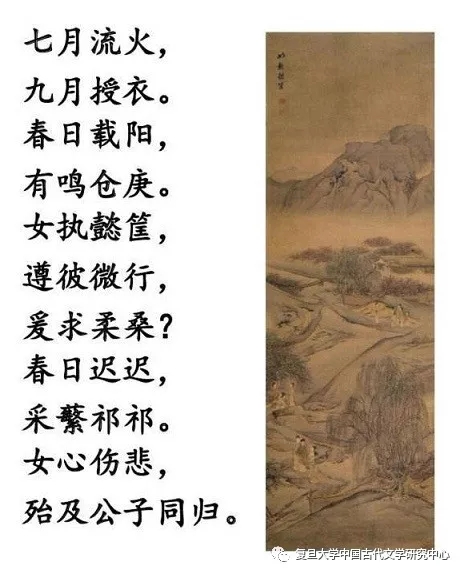 七月流火，
九月授衣。
春日载阳，
有鸣仓庚。
女执懿筐，
遵彼微行，
爰求柔桑？
春日迟迟，
采蘩祁祁。
女心伤悲，
殆及公子同归。
复旦大学中国古代文学研究中心